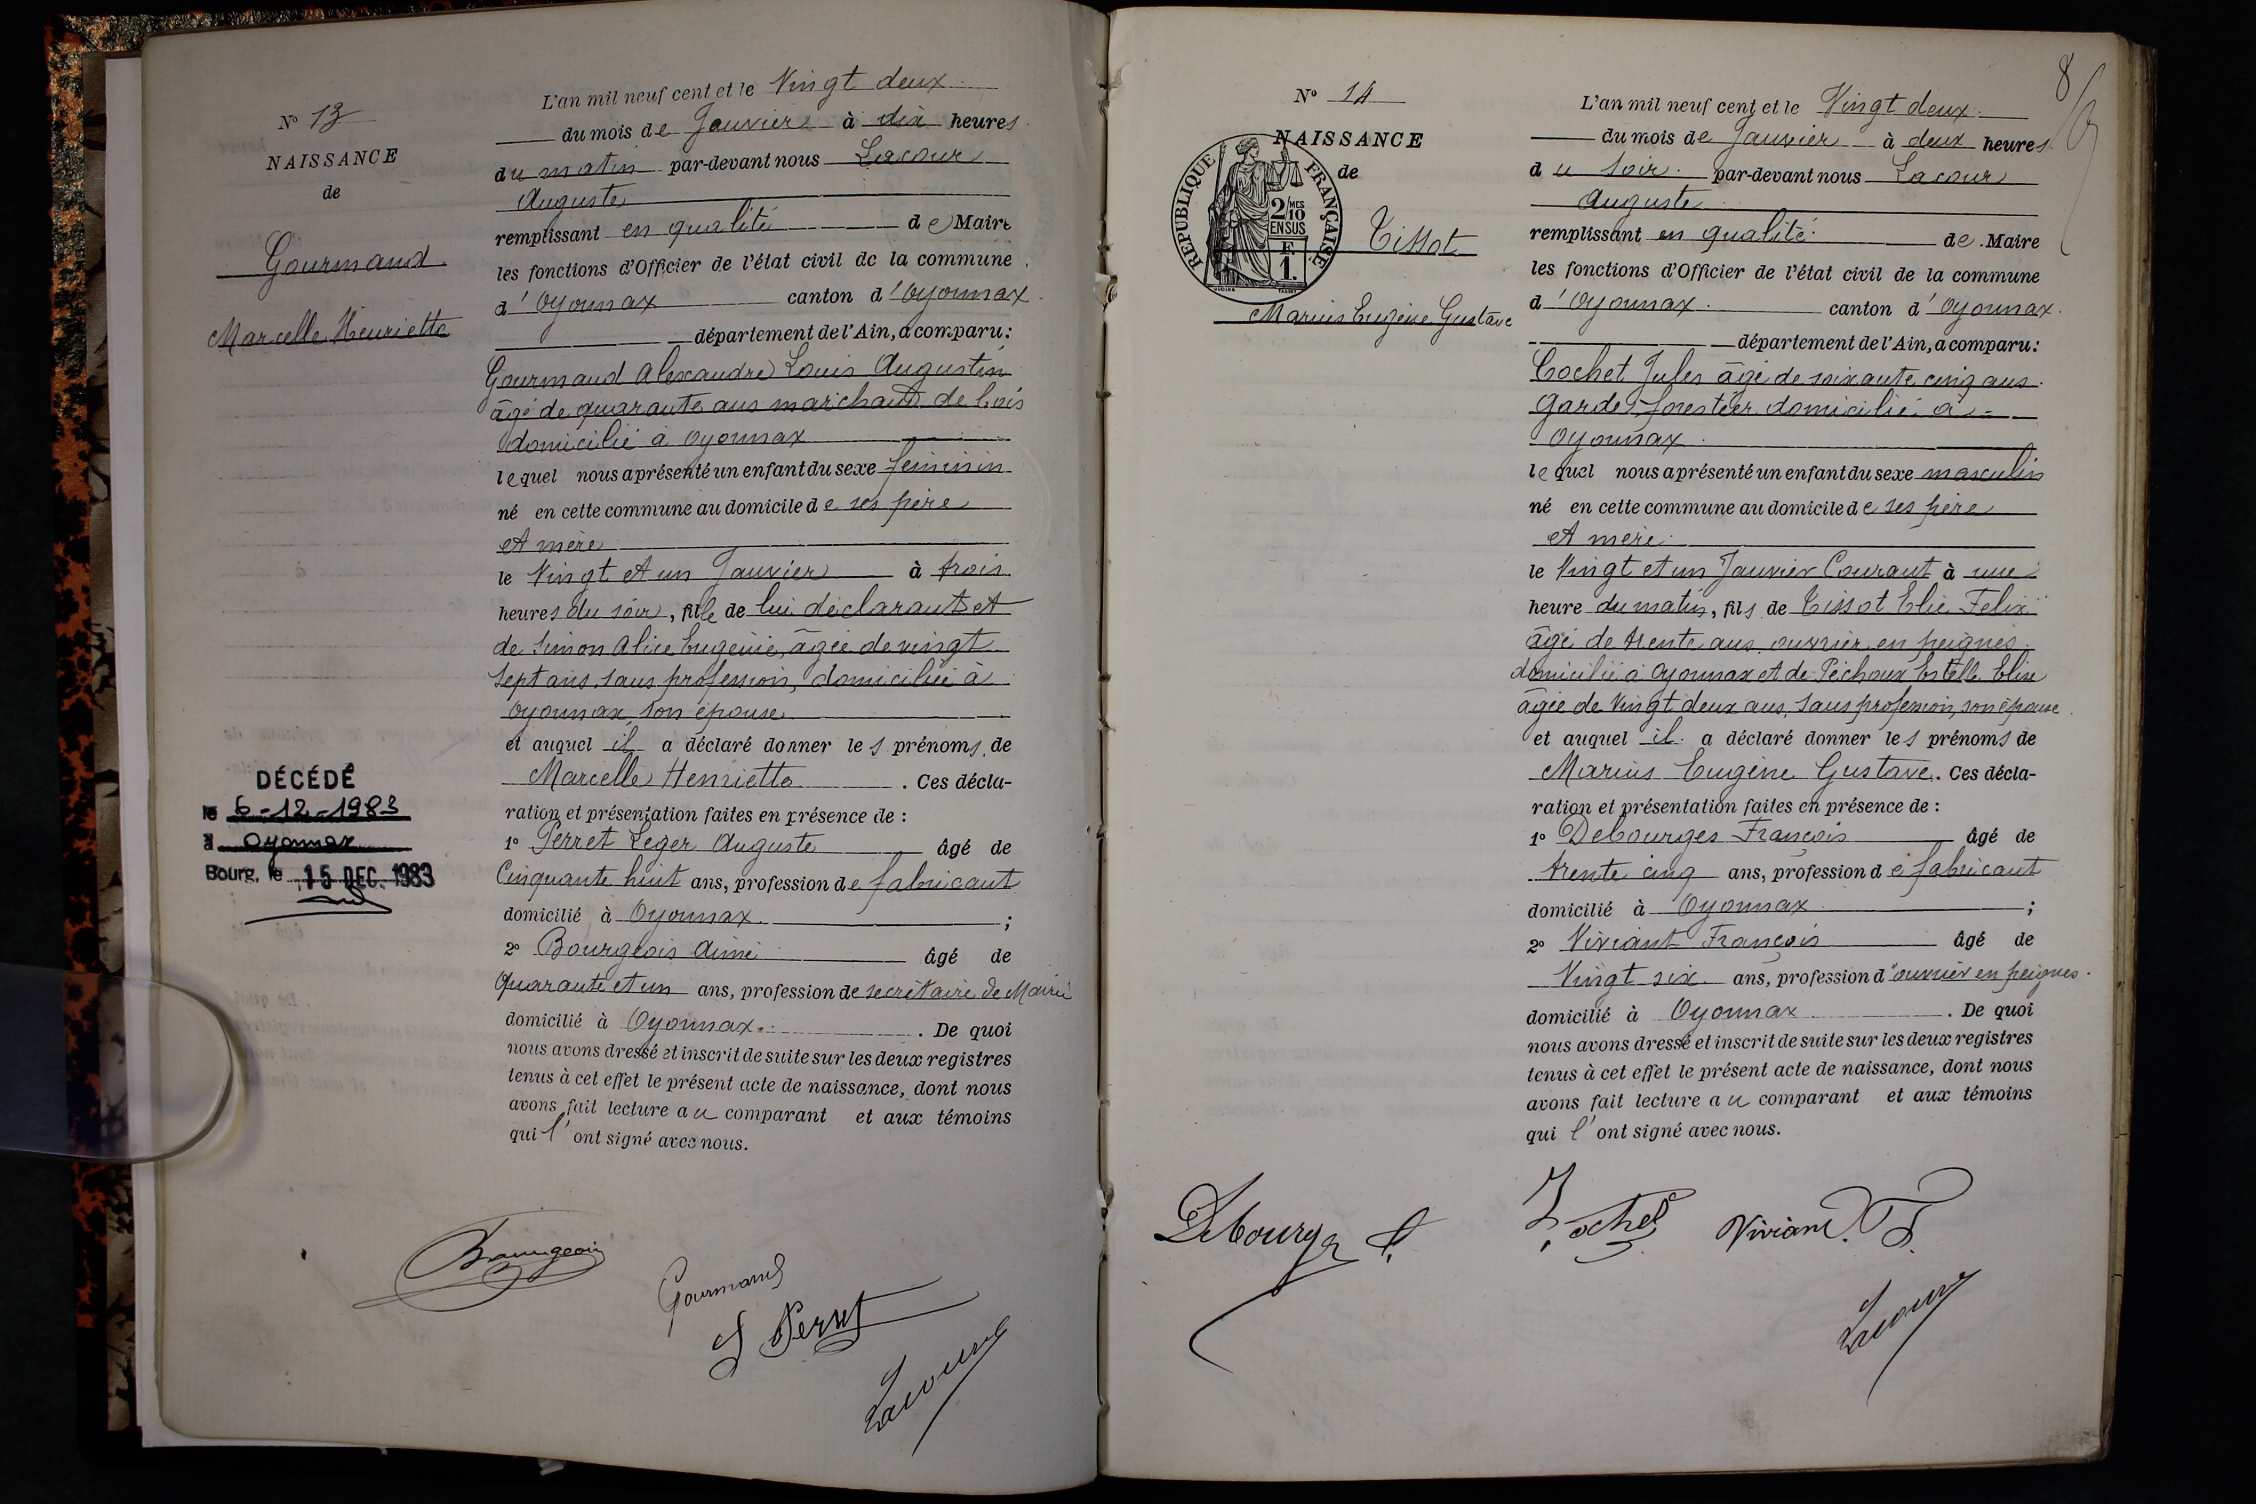 N° 13
NAISSANCE
de
Gourmand
Marcelle Henriette
DÉCÉDÉ
le 6-12-1983
à Oyonnax
Bourg, le 15 DEC. 1983
L'an mil neuf cent et le Vingt deux
du mois de Janvier à dix heures
du matin par-devant nous Lacour
Auguste
remplissant en qualité de Maire
les fonctions d'Officier de l'état civil de la commune
d'Oyonnax canton d'Oyonnax
département de l'Ain, a comparu:
Gourmand Alexandre Louis Augustin
âgé de quarante ans marchand de bois
domicilié à Oyonnax
lequel nous a présenté un enfant du sexe feminin
né en cette commune au domicile de ses père
et mère
le Vingt et un Janvier à trois
heures du soir, fille de lui déclarant et
de Simon Alice Eugénie, âgée de vingt
sept ans, sans profession, domiciliée à
Oyonnax, son épouse
et auquel il a déclaré donner les prénoms de
Marcelle Henriette. Ces décla-
ration et présentation faites en présence de :
1° Perret Leger Auguste âgé de
Cinquante huit ans, profession de fabricant
domicilié à Oyonnax ;
2° Bourgeois Aimé âgé de
Quarante et un ans, profession de secrétaire de Mairie
domicilié à Oyonnax. De quoi
nous avons dressé et inscrit de suite sur les deux registres
tenus à cet effet le présent acte de naissance, dont nous
avons fait lecture au comparant et aux témoins
qui l'ont signé avec nous.
Bourgeois
Gourmand
L Perret
Lacour
8
N° 14
NAISSANCE
de
RÉPUBLIQUE FRANÇAISE
2/10 MES
EN SUS
F.
1.
Tissot
Marius Eugène Gustave
L'an mil neuf cent et le Vingt deux
du mois de Janvier à deux heures
du soir par-devant nous Lacour
Auguste
remplissant en qualité de Maire
les fonctions d'Officier de l'état civil de la commune
d'Oyonnax canton d'Oyonnax
département de l'Ain, a comparu:
Cochet Jules âgé de soixante cinq ans
Garde forestier domicilié à
Oyonnax
lequel nous a présenté un enfant du sexe masculin
né en cette commune au domicile de ses père
et mère
le Vingt et un Janvier Courant à une
heure du matin, fils de Tissot Elie Felix
âgé de trente ans ouvrier en peignes
domicilié à Oyonnax et de Péchoux Estelle Elise
âgée de Vingt deux ans, sans profession, son épouse
et auquel il a déclaré donner les prénoms de
Marius Eugène Gustave. Ces décla-
ration et présentation faites en présence de :
1° Debourges François âgé de
trente cinq ans, profession de fabricant
domicilié à Oyonnax ;
2° Viviant François âgé de
Vingt six ans, profession d'ouvrier en peignes
domicilié à Oyonnax. De quoi
nous avons dressé et inscrit de suite sur les deux registres
tenus à cet effet le présent acte de naissance, dont nous
avons fait lecture au comparant et aux témoins
qui l'ont signé avec nous.
Debourge f.
J. Cochet
Viviant. F.
Lacour